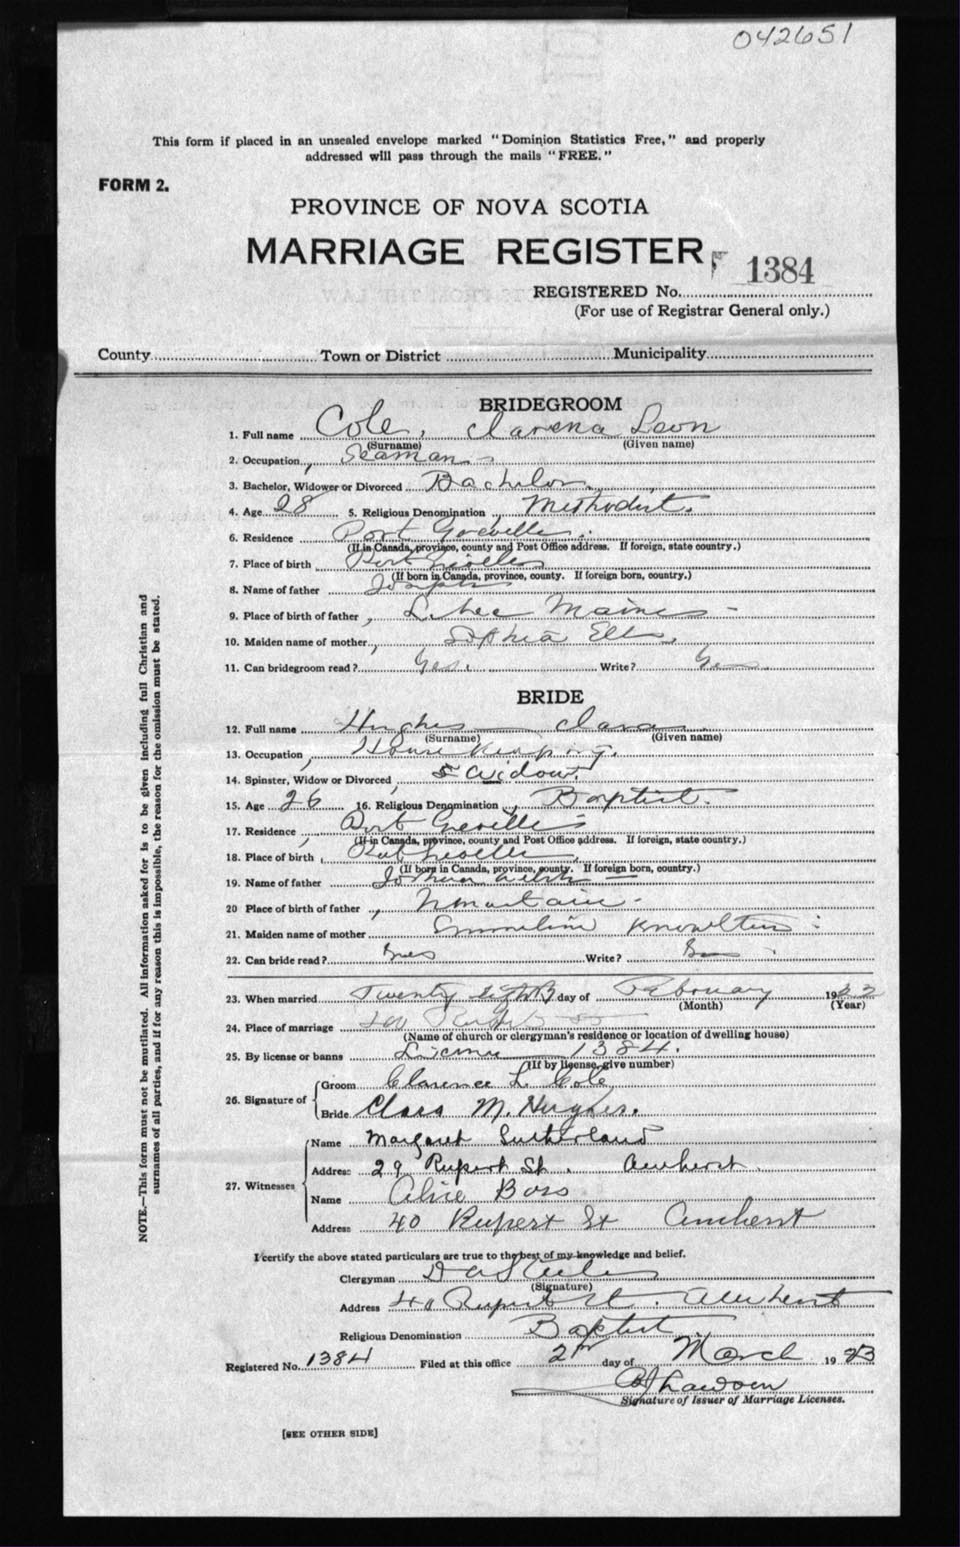 042651
This form if placed in an unsealed envelope marked "Dominion Statistics Free," and properly
addressed will pass through the mails "FREE."
FORM 2.
PROVINCE OF NOVA SCOTIA
MARRIAGE REGISTER
1384
REGISTERED No.
(For use of Registrar General only.)
County Town or District Municipality
BRIDEGROOM
1. Full name Cole, Leon
(Surname) (Given name)
2. Occupation, Seaman
3. Bachelor, Widower or Divorced Bachelor
4. Age 28 5. Religious Denomination, Methodist.
6. Residence Port Greville
(If in Canada, province, county and Post Office address. If foreign, state country.)
7. Place of birth Port Greville
(If born in Canada, province, county. If foreign born, country.)
8. Name of father Joseph
9. Place of birth of father, Maine
10. Maiden name of mother, Sophia
11. Can bridegroom read? Yes Write?
BRIDE
12. Full name Hughes Clara
(Surname) (Given name)
13. Occupation, Housekeeping.
14. Spinster, Widow or Divorced, Widow
15. Age 26 16. Religious Denomination, Baptist.
17. Residence, Port Greville
(If in Canada, province, county and Post Office address. If foreign, state country.)
18. Place of birth, Port Greville
(If born in Canada, province, county. If foreign born, country.)
19. Name of father Joshua
20 Place of birth of father,
21. Maiden name of mother Emmeline Knowlton
22. Can bride read? Yes Write?
23. When married Twenty Eighth day of February 19
(Month) (Year)
24. Place of marriage 40 Rupert St
(Name of church or clergyman's residence or location of dwelling house)
25. By license or banns License 1384.
(If by license, give number)
26. Signature of Groom Clarence L. Cole
Bride Clara M. Hughes.
27. Witnesses Name Margaret Sutherland
Address 29 Rupert St. Amherst.
Name Alice Boss
Address 40 Rupert St Amherst
I certify the above stated particulars are true to the best of my knowledge and belief.
Clergyman D A Steele
(Signature)
Address 40 Rupert St. Amherst
Religious Denomination Baptist
Registered No. 1384 Filed at this office 2nd day of March 19 23
Signature of Issuer of Marriage Licenses.
[SEE OTHER SIDE]
NOTE.—This form must not be mutilated. All information asked for is to be given including full Christian and
surnames of all parties, and if for any reason this is impossible, the reason for the omission must be stated.